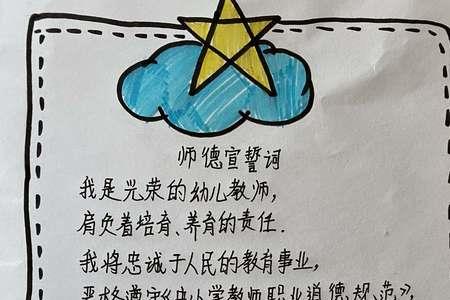 师德宣誓词
我是光荣的幼儿教师,
肩负着培育、养育的责任.
我将忠诚于人民的教育事业,
严格遵守《中小学教师职业道德规范》,